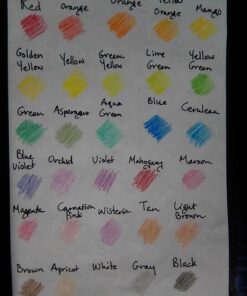 Red Orange Orange Yellow Orange Mango
Golden Yellow Yellow Green Yellow Lime Green Yellow Green
Green Asparagus Aqua Green Blue Cerulean
Blue Violet Orchid Violet Mahogany Maroon
Magenta Carnation Pink Wisteria Tan Light Brown
Brown Apricot White Gray Black